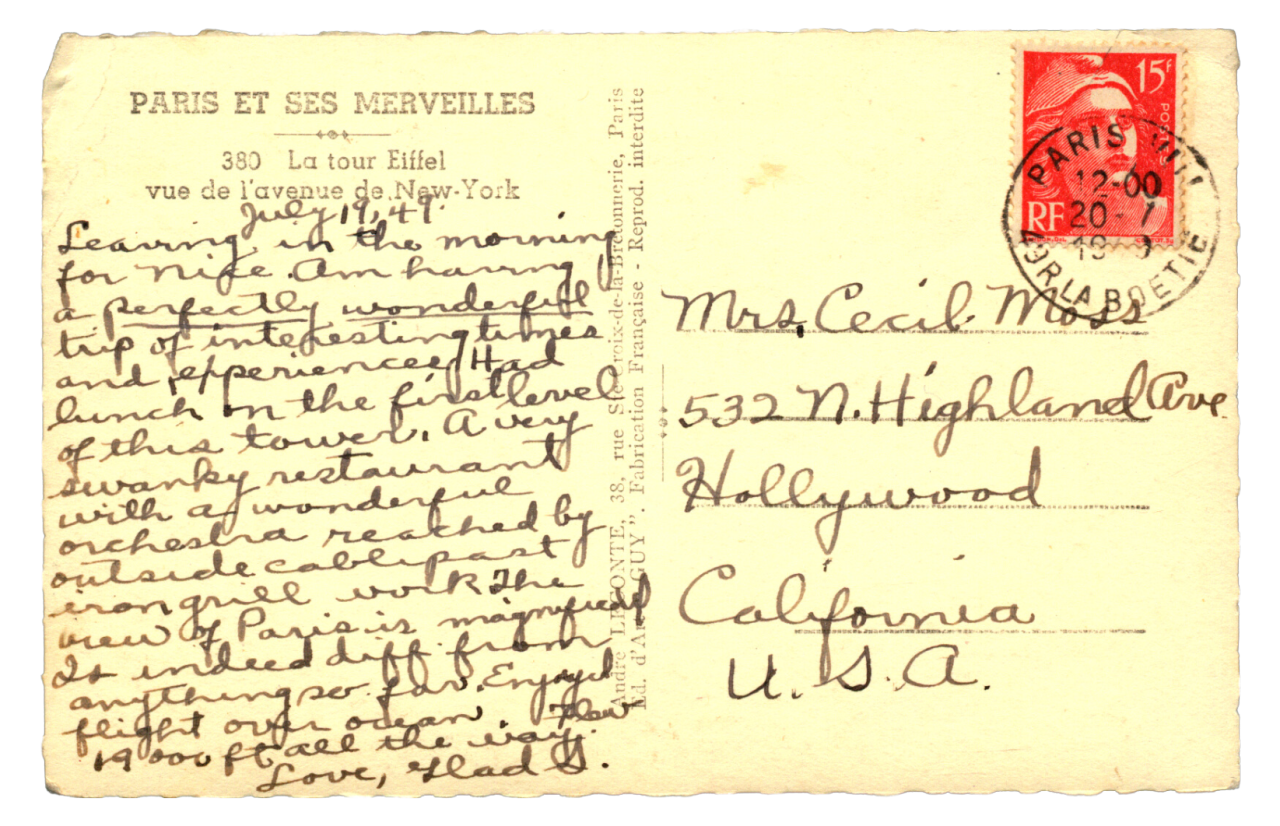 PARIS ET SES MERVEILLES
380 La tour Eiffel
vue de l'avenue de New-York
July 19, 49.
Leaving in the morning
for Nice. Am having
a perfectly wonderful
trip of interesting times
and experiences. Had
lunch on the first level
of this tower. A very
swanky restaurant
with a wonderful
orchestra reached by
outside cable past
iron grill work. The
view of Paris is
Is indeed diff. from
anything so far. Enjoyed
flight over ocean. Flew
19000 ft all the way.
Love, Glad S.
André LECONTE, 38, rue Ste-Croix-de-la-Bretonnerie, Paris
Ed. d'Art "GUY". Fabrication Française - Reprod. interdite
15F
POSTES
RF
PARIS VIII
12-00
20-7
19
R. LA BOETIE
Mrs. Cecil Moss
532 N. Highland Ave.
Hollywood
California
U.S.A.